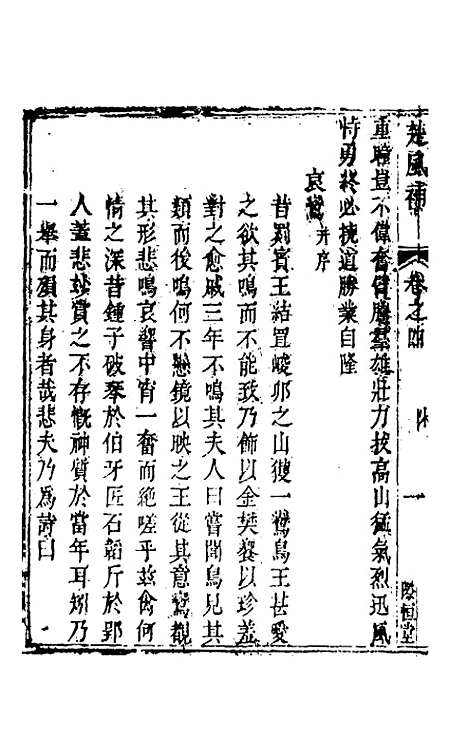 楚風補 卷之四 一
重瞳豈不偉奮臂騰羣雄壯力拔高山猛氣烈迅風
恃勇終必撓道勝業自隆
哀鸞并序
昔罽賓王結罝峻卯之山獲一鸞鳥王甚愛
之欲其鳴而不能致乃飾以金樊饗以珍羞
對之愈戚三年不鳴其夫人曰嘗聞鳥見其
類而後鳴何不懸鏡以映之王從其意鸞覩
其形悲鳴哀響中宵一奮而絶嗟乎兹禽何
情之深昔鍾子破琴於伯牙匠石韜斤於郢
人蓋悲妙賞之不存慨神質於當年耳矧乃
一舉而殞其身者哉悲夫乃爲詩曰